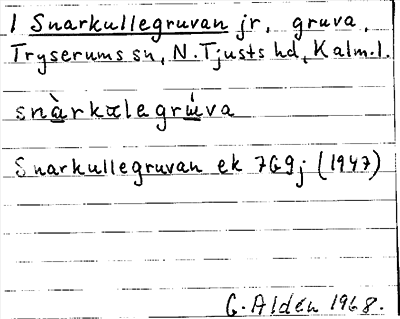 1 Snarkullegruvan jr, gruva,
Tryserums sn, N. Tjusts hd, Kalm.l.
snàrkalegrúva
Snarkullegruvan ek 7G9j (1947)
G. Aldén 1968.